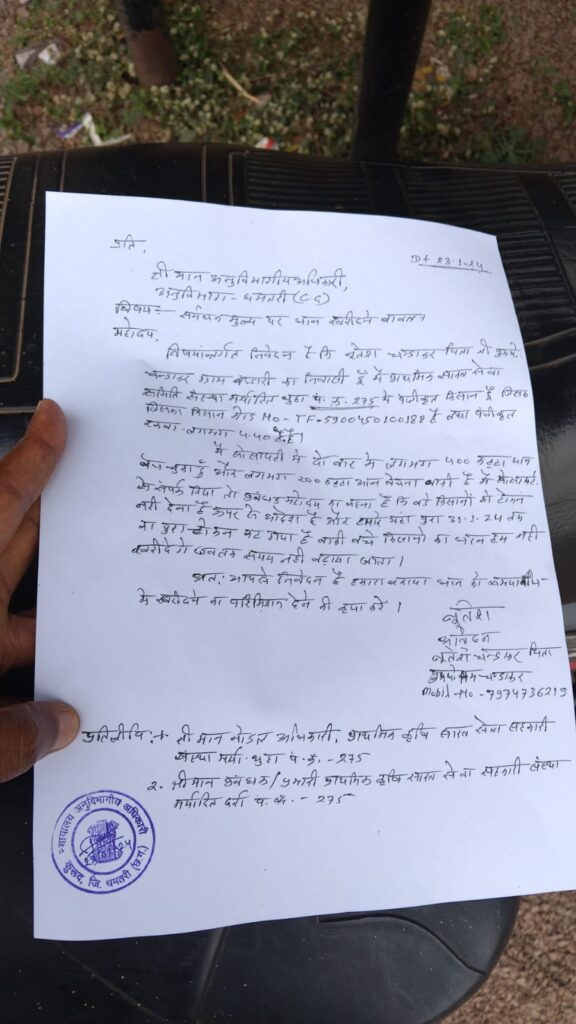 प्रति,
Dt 23.1.24
श्री मान अनुविभागीय अधिकारी,
अनुविभाग - धमतरी (CG)
विषय :- समर्थन मुल्य पर धान खरीदने बाबत।
महोदय,
विषयान्तर्गत निवेदन है कि चन्द्राकर पिता श्री
चन्द्राकर ग्राम का निवासी हूँ मैं प्राथमिक साख सेवा
समिति संस्था मर्यादित पं. क्र. 275 के पंजीकृत किसान हूँ जिसका
जिसका किसान कोड No - TF-5900450100188 है तथा पंजीकृत
रकबा लगभग 4.40 है।
मैं सोसायटी में दो बार के लगभग 400 कट्टा धान
बेच चुका हूँ और लगभग 200 कट्टा धान बेचना बाकी है मैं
के संपर्क किया तो प्रबंधक महोदय का कहना है कि बड़े किसानों को टोकन
नहीं देना है ऊपर से आदेश है और हमारे यहां पुरा 31.1.24 तक
का पुरा टोकन कट गया है बाकी बचे किसानों का धान हम नहीं
खरीदेंगे जबतक समय नहीं बढ़ाया जाता।
अतः आपसे निवेदन है हमारा बकाया धान को
के खरीदने का देने की कृपा करें।
आवेदक
चन्द्राकर पिता
चन्द्राकर
Mobil-No - 7974736219
प्रतिलीपि :- श्री मान नोडल अधिकारी, प्राथमिक कृषि साख सेवा सहकारी
संस्था मर्या. पं. क्र. - 275
2. श्रीमान प्रबंधक/प्रभारी प्राथमिक कृषि साख सेवा सहकारी संस्था
मर्यादित दर्रा पं. क्र. - 275
न्यायालय अनुविभागीय अधिकारी
कुरूद, जि. धमतरी (छ.ग.)